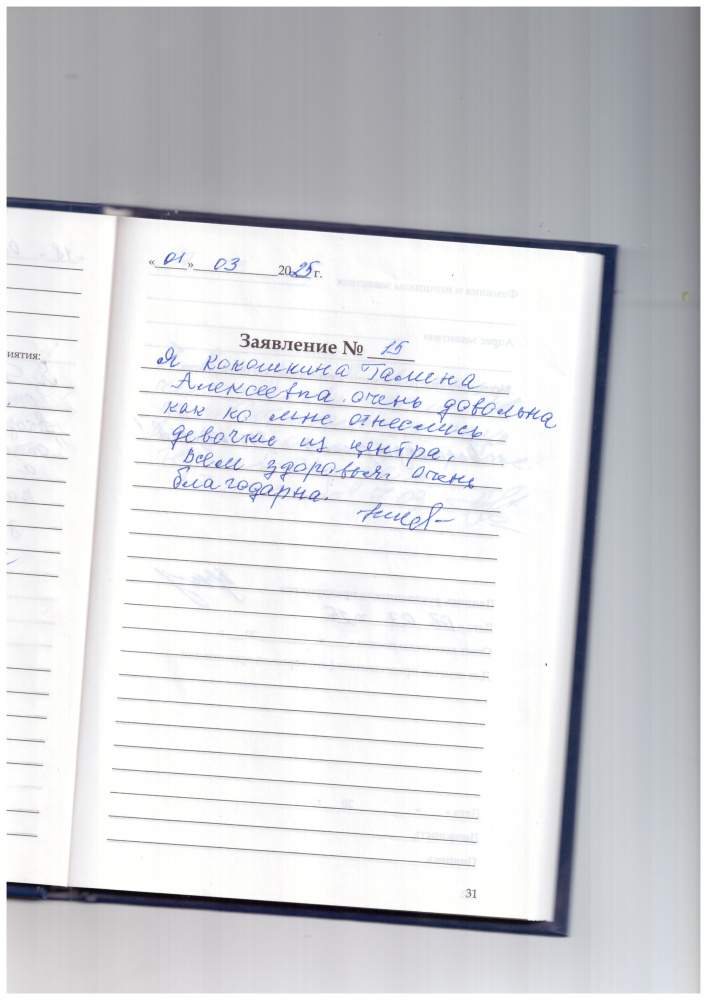 «01» 03 2025 г.
Заявление № 15
Я Кокошкина Галина
Алексеевна очень довольна
как ко мне отнеслись
девочки из центра.
Всем здоровья. Очень
благодарна.
иятия:
31